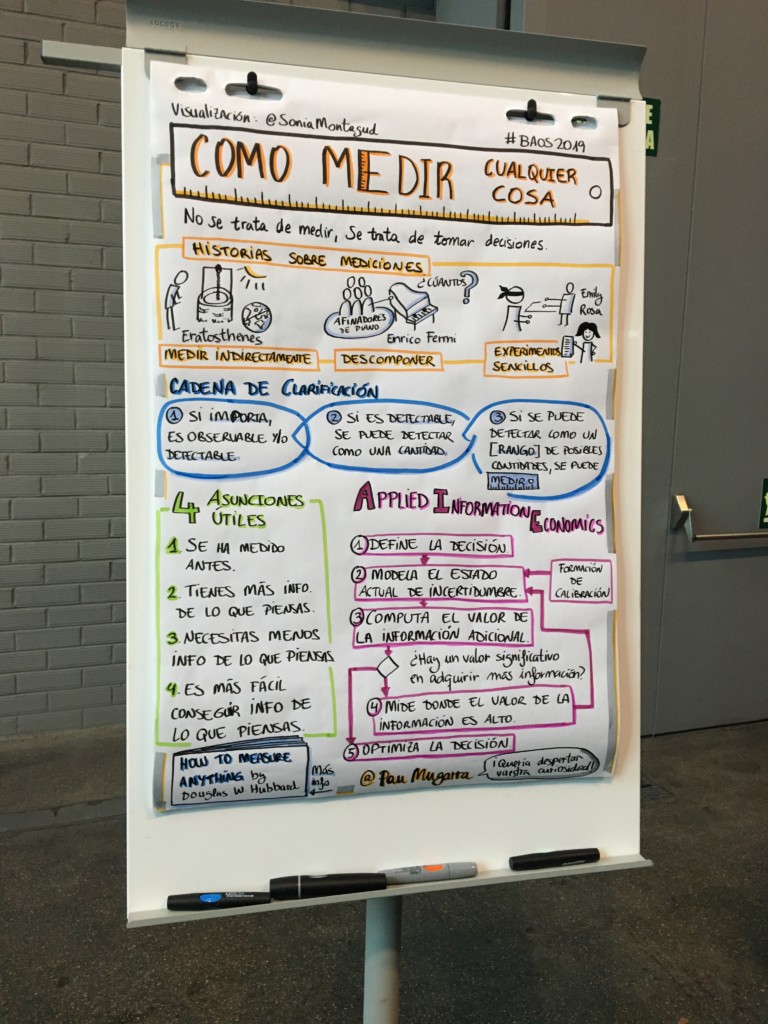 Visualización: @SoniaMontagud
#BAOS2019
COMO MEDIR CUALQUIER COSA
No se trata de medir, Se trata de tomar decisiones.
HISTORIAS SOBRE MEDICIONES
Eratosthenes
MEDIR INDIRECTAMENTE
¿CUÁNTOS?
AFINADORES
DE PIANO
Enrico Fermi
DESCOMPONER
Emily
Rosa
EXPERIMENTOS
SENCILLOS
CADENA DE CLARIFICACIÓN
1 SI IMPORTA,
ES OBSERVABLE Y/O
DETECTABLE.
2 SI ES DETECTABLE,
SE PUEDE DETECTAR
COMO UNA CANTIDAD.
3 SI SE PUEDE
DETECTAR COMO UN
[RANGO] DE POSIBLES
CANTIDADES, SE PUEDE
MEDIR
4 ASUNCIONES
ÚTILES
1. SE HA MEDIDO
ANTES.
2. TIENES MÁS INFO.
DE LO QUE PIENSAS.
3. NECESITAS MENOS
INFO DE LO QUE PIENSAS
4. ES MÁS FÁCIL
CONSEGUIR INFO DE
LO QUE PIENSAS.
HOW TO MEASURE
ANYTHING by
Douglas W Hubbard
Más
info
APPLIED INFORMATION ECONOMICS
1 DEFINE LA DECISIÓN.
2 MODELA EL ESTADO
ACTUAL DE INCERTIDUMBRE.
FORMACIÓN
DE
CALIBRACIÓN
3 COMPUTA EL VALOR DE
LA INFORMACIÓN ADICIONAL.
¿Hay un valor significativo
en adquirir más información?
4 MIDE DONDE EL VALOR DE LA
INFORMACIÓN ES ALTO.
5 OPTIMIZA LA DECISIÓN.
@Pau Mugarra
¡Quería despertar
vuestra curiosidad!